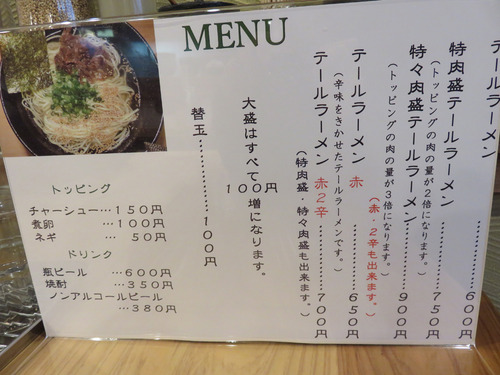 MENU
テールラーメン……………600
特肉盛テールラーメン………750
(トッピングの肉の量が2倍になります。)
特々肉盛テールラーメン……900
(トッピングの肉の量が3倍になります。)
(赤・2辛も出来ます。)
テールラーメン 赤…………650円
(辛味をきかせたテールラーメンです。)
テールラーメン 赤2辛………700円
(特肉盛・特々肉盛も出来ます。)
大盛はすべて100円増になります。
替玉…………100円
トッピング
チャーシュー…150円
煮卵 …100円
ネギ … 50円
ドリンク
瓶ビール …600円
焼酎 …350円
ノンアルコールビール
…380円